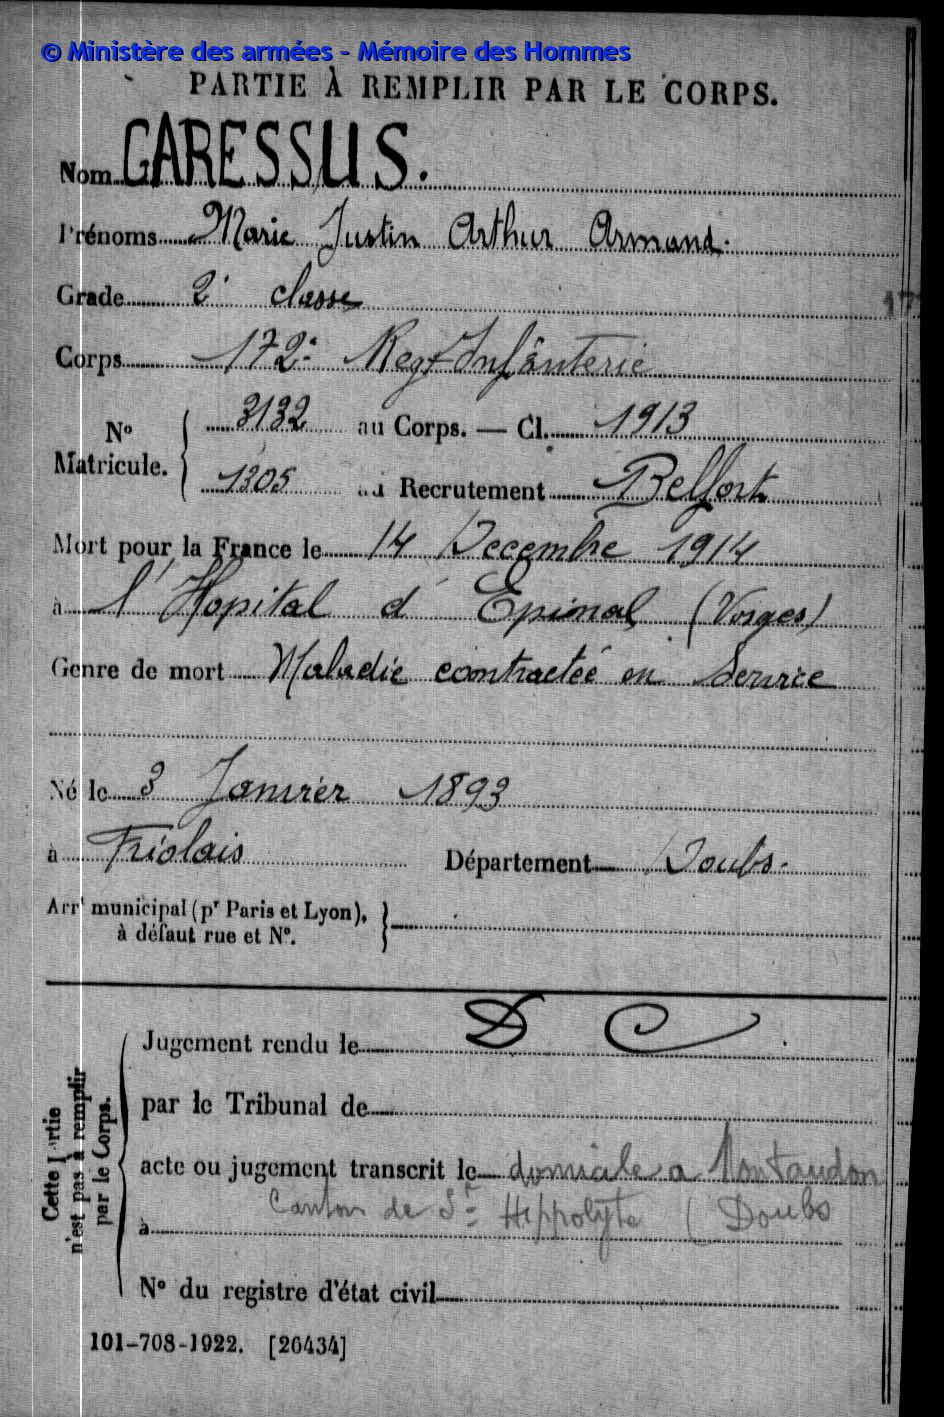 © Ministère des armées - Mémoire des Hommes
PARTIE À REMPLIR PAR LE CORPS.
Nom GARESSUS.
Prénoms Marie Justin Arthur Armand.
Grade 2e classe
17
Corps 172e Regt Infanterie
3132 au Corps. — Cl. 1913
No
Matricule.
1305 au Recrutement Belfort
Mort pour la France le 14 Decembre 1914
à l'Hopital d'Epinal (Vosges)
Genre de mort Maladie contractée en service
Né le 3 Janvier 1893
à Friolais Département Doubs.
Arrt municipal (pr Paris et Lyon),
à défaut rue et No.
Cette partie
n'est pas à remplir
par le Corps.
Jugement rendu le
par le Tribunal de
acte ou jugement transcrit le domicile a Montandon
à Canton de St Hippolyte (Doubs
No du registre d'état civil
101-708-1922. [26434]